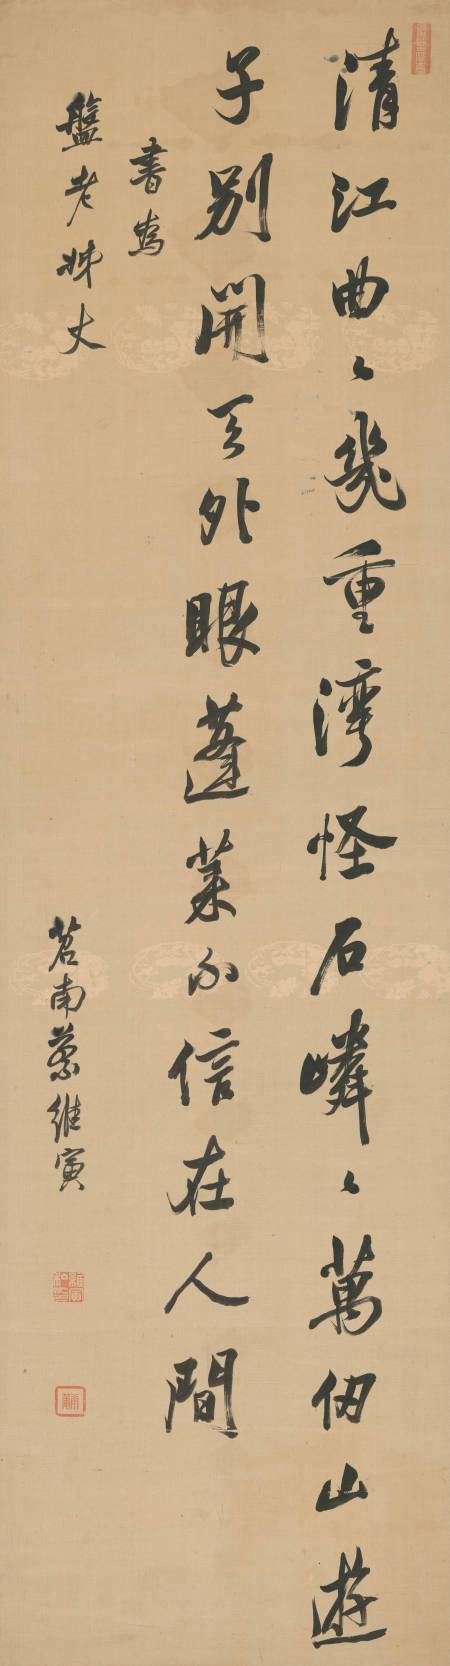 清江曲〻幾重灣怪石嶙〻萬仞山遊
子別開天外眼蓬萊不信在人間
書為
盤老姊丈
苕南蔡維寅